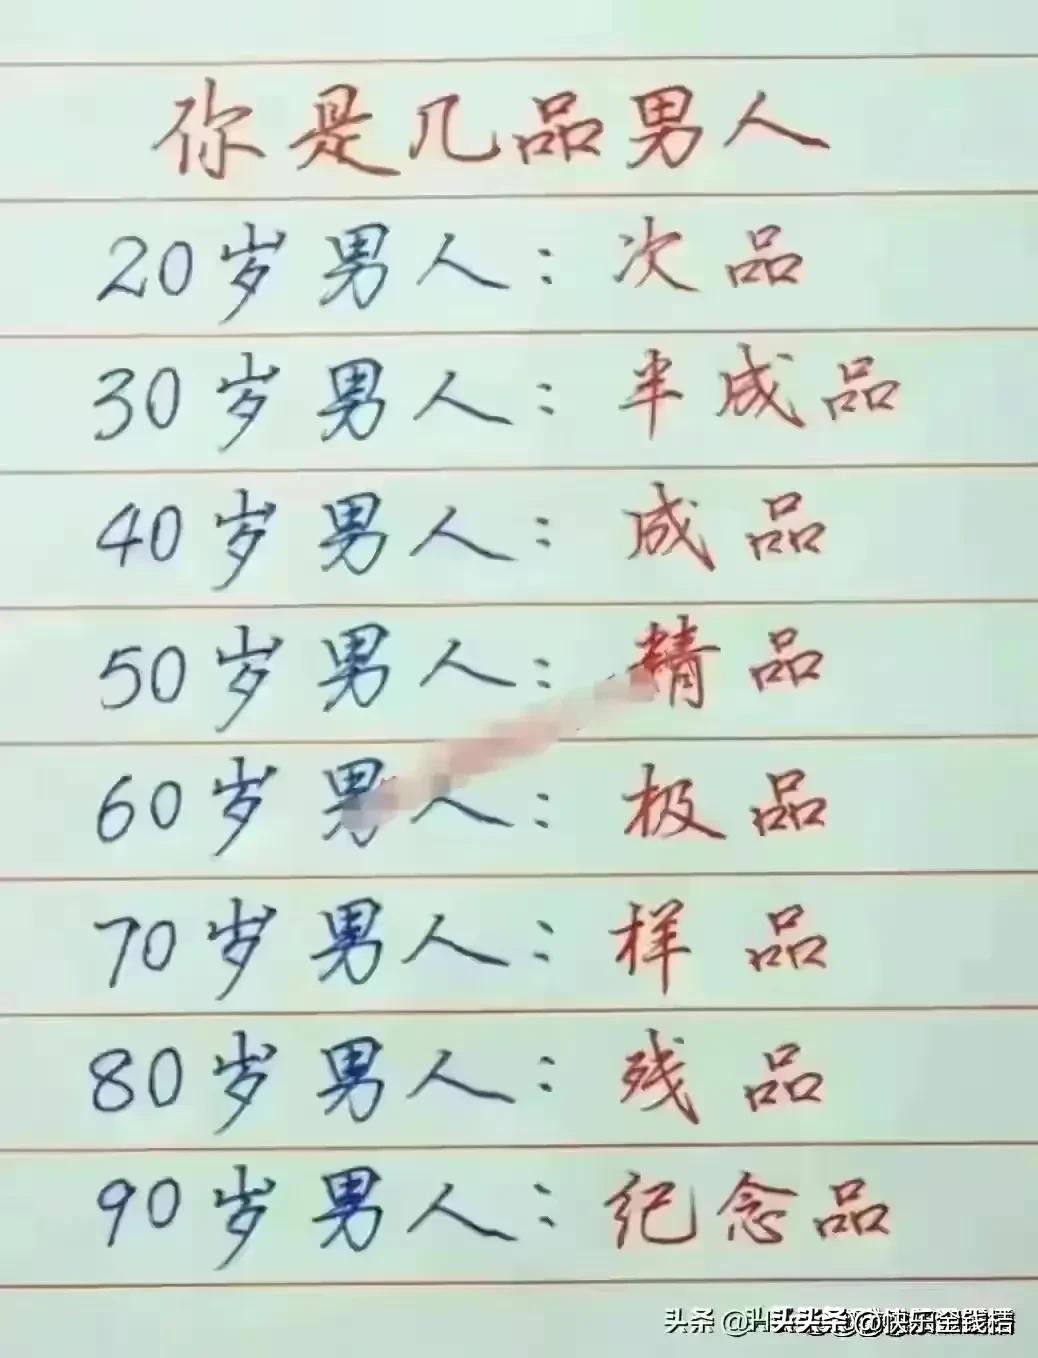 你是几品男人
20岁男人：次品
30岁男人：半成品
40岁男人：成品
50岁男人：精品
60岁男人：极品
70岁男人：样品
80岁男人：残品
90岁男人：纪念品
头条 @快乐金钱桔